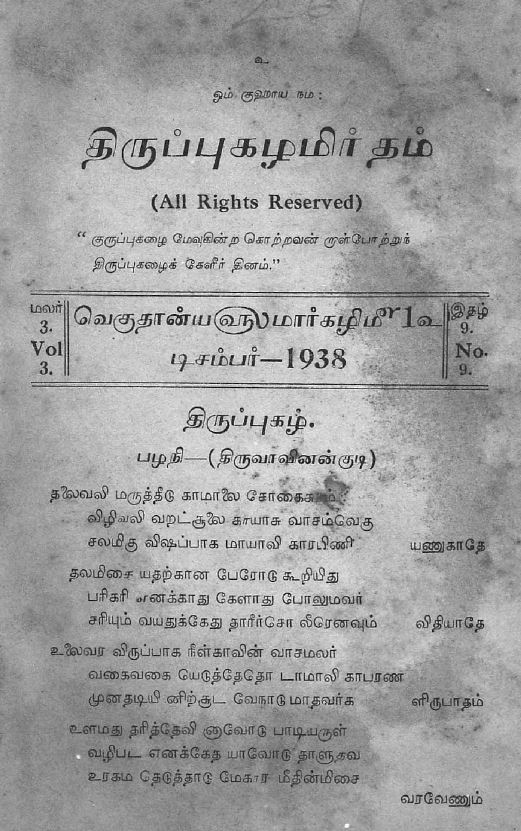 உ
ஓம் குஹாய நம :
திருப்புகழமிர்தம்
(All Rights Reserved)
“ குருப்புகழை மேவுகின்ற கொற்றவன் றாள்போற்றுந்
திருப்புகழைக் கேளீர் தினம்.”
மலர் 3. Vol 3.
வெகுதான்ய௵ மார்கழி௴ 1௨
டிசம்பர்—1938
இதழ் 9. No. 9.
திருப்புகழ்.
பழநி—(திருவாவினன்குடி)
தலைவலி மருத்தீடு காமாலை சோகைசுரம்
விழிவலி வறட்சூலை காயாசு வாசம்வெகு
சலமிகு விஷப்பாக மாயாவி காரபிணி யணுகாதே
தலமிசை யதற்கான பேரோடு கூறியிது
பரிகரி எனக்காது கேளாது போலுமவர்
சரியும் வயதுக்கேது தாரீர்சொ லீரெனவும் விதியாதே
உலைவர விருப்பாக நீள்காவின் வாசமலர்
வகைவகை யெடுத்தேதொ டாமாலி காபரண
முனதடியி னிற்சூட வேநாடு மாதவர்க ளிருபாதம்
உளமது தரித்தேவி னாவோடு பாடியருள்
வழிபட எனக்கேத யாவோடு தாளுதவ
உரகம தெடுத்தாடு மேகார மீதின்மிசை
வரவேணும்